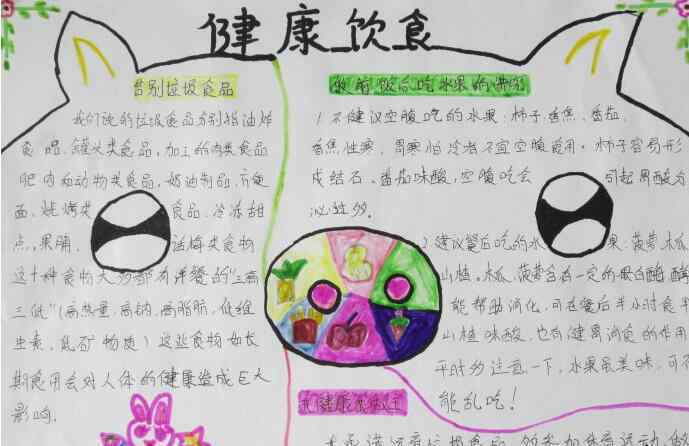 健康饮食
告别垃圾食品
我们说的垃圾食品分别指油炸
食品、罐头类食品、加工的肉类食品
肥肉和动物类食品、奶油制品、方便
面、烧烤类食品、冷冻甜
点、果脯、话梅类食物
这十种食物大多都有详餐的“三高
三低”(高热量、高钠、高脂肪、低维
生素、低矿物质)这些食物如长
期食用会对人体的健康造成巨大
影响.
饭前饭后吃水果的
1.不建议空腹吃的水果:柿子、香蕉、番茄.
香蕉性寒,胃寒怕冷者不宜空腹食用.柿子容易形
成结石、番茄味酸,空腹吃会引起胃酸分
泌过多.
2.建议餐后吃的水果:菠萝、木瓜
山楂.木瓜、菠萝含有一定的蛋白酶,
能帮助消化,可在餐后半小时食
山楂味酸,也有健胃消食的作用
平时多注意一下,水果虽美味,可不
能乱吃!
健康